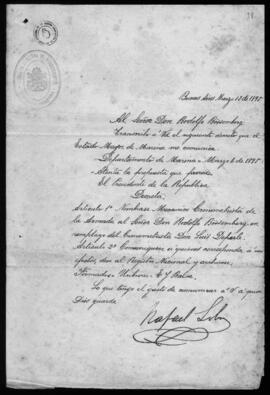 Buenos Aires Marzo 12 de 1895
Al Señor Don Rodolfo
Transcribo á Vd el siguiente decreto que el
Estado Mayor de Marina me comunica
Departamento de Marina - Marzo 6 de 1895
Vista la propuesta que precede
El Presidente de la República
Decreta:
Artículo 1º Nómbrase Mecánico Cronometrista de
la Armada al Señor Don Rodolfo en
reemplazo del Cronometrista Don Luis
Artículo 2º Comuníquese á quienes corresponda á
efectos, dése al Registro Nacional y archívese
Firmado: Uriburu
Lo que tengo el gusto de comunicar á Vd á quien
Dios guarde
Rafael